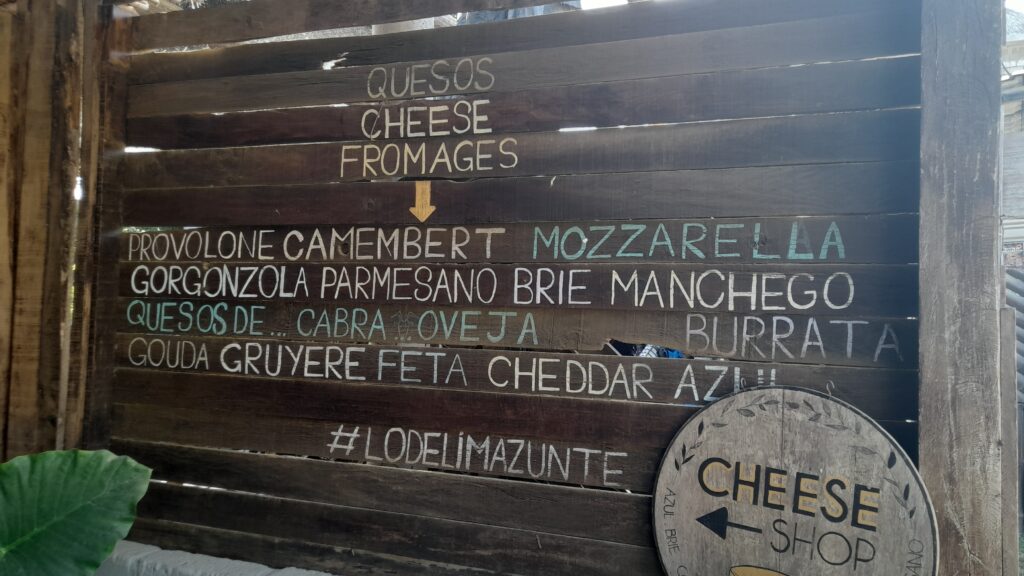 QUESOS
CHEESE
FROMAGES
PROVOLONE CAMEMBERT MOZZARELLA
GORGONZOLA PARMESANO BRIE MANCHEGO
QUESOS DE... CABRA OVEJA BURRATA
GOUDA GRUYERE FETA CHEDDAR AZUL
#LODELIMAZUNTE
CHEESE
SHOP
AZUL BRIE